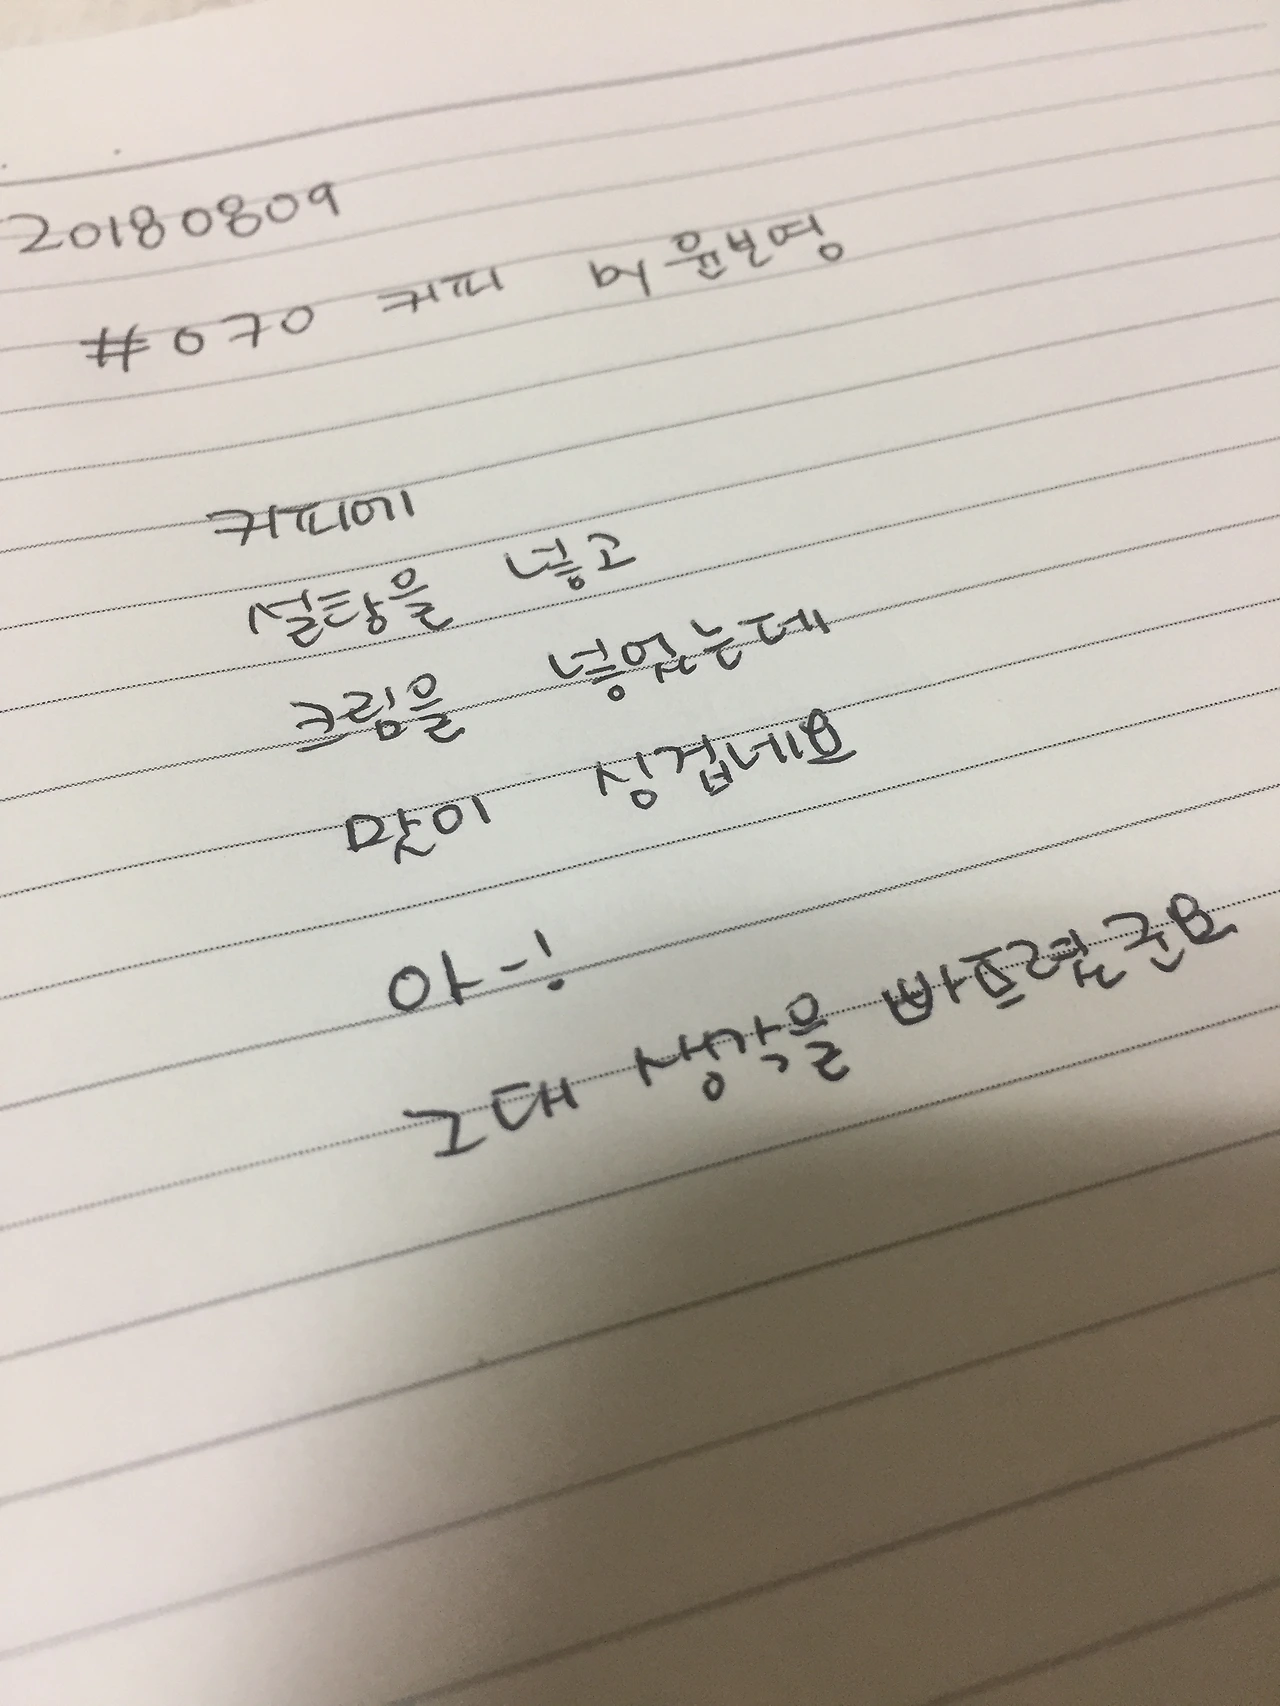 20180809
#070 커피 by 윤보영
커피에
설탕을 넣고
크림을 넣었는데
맛이 싱겁네요
아-!
그대 생각을 빠트렸군요